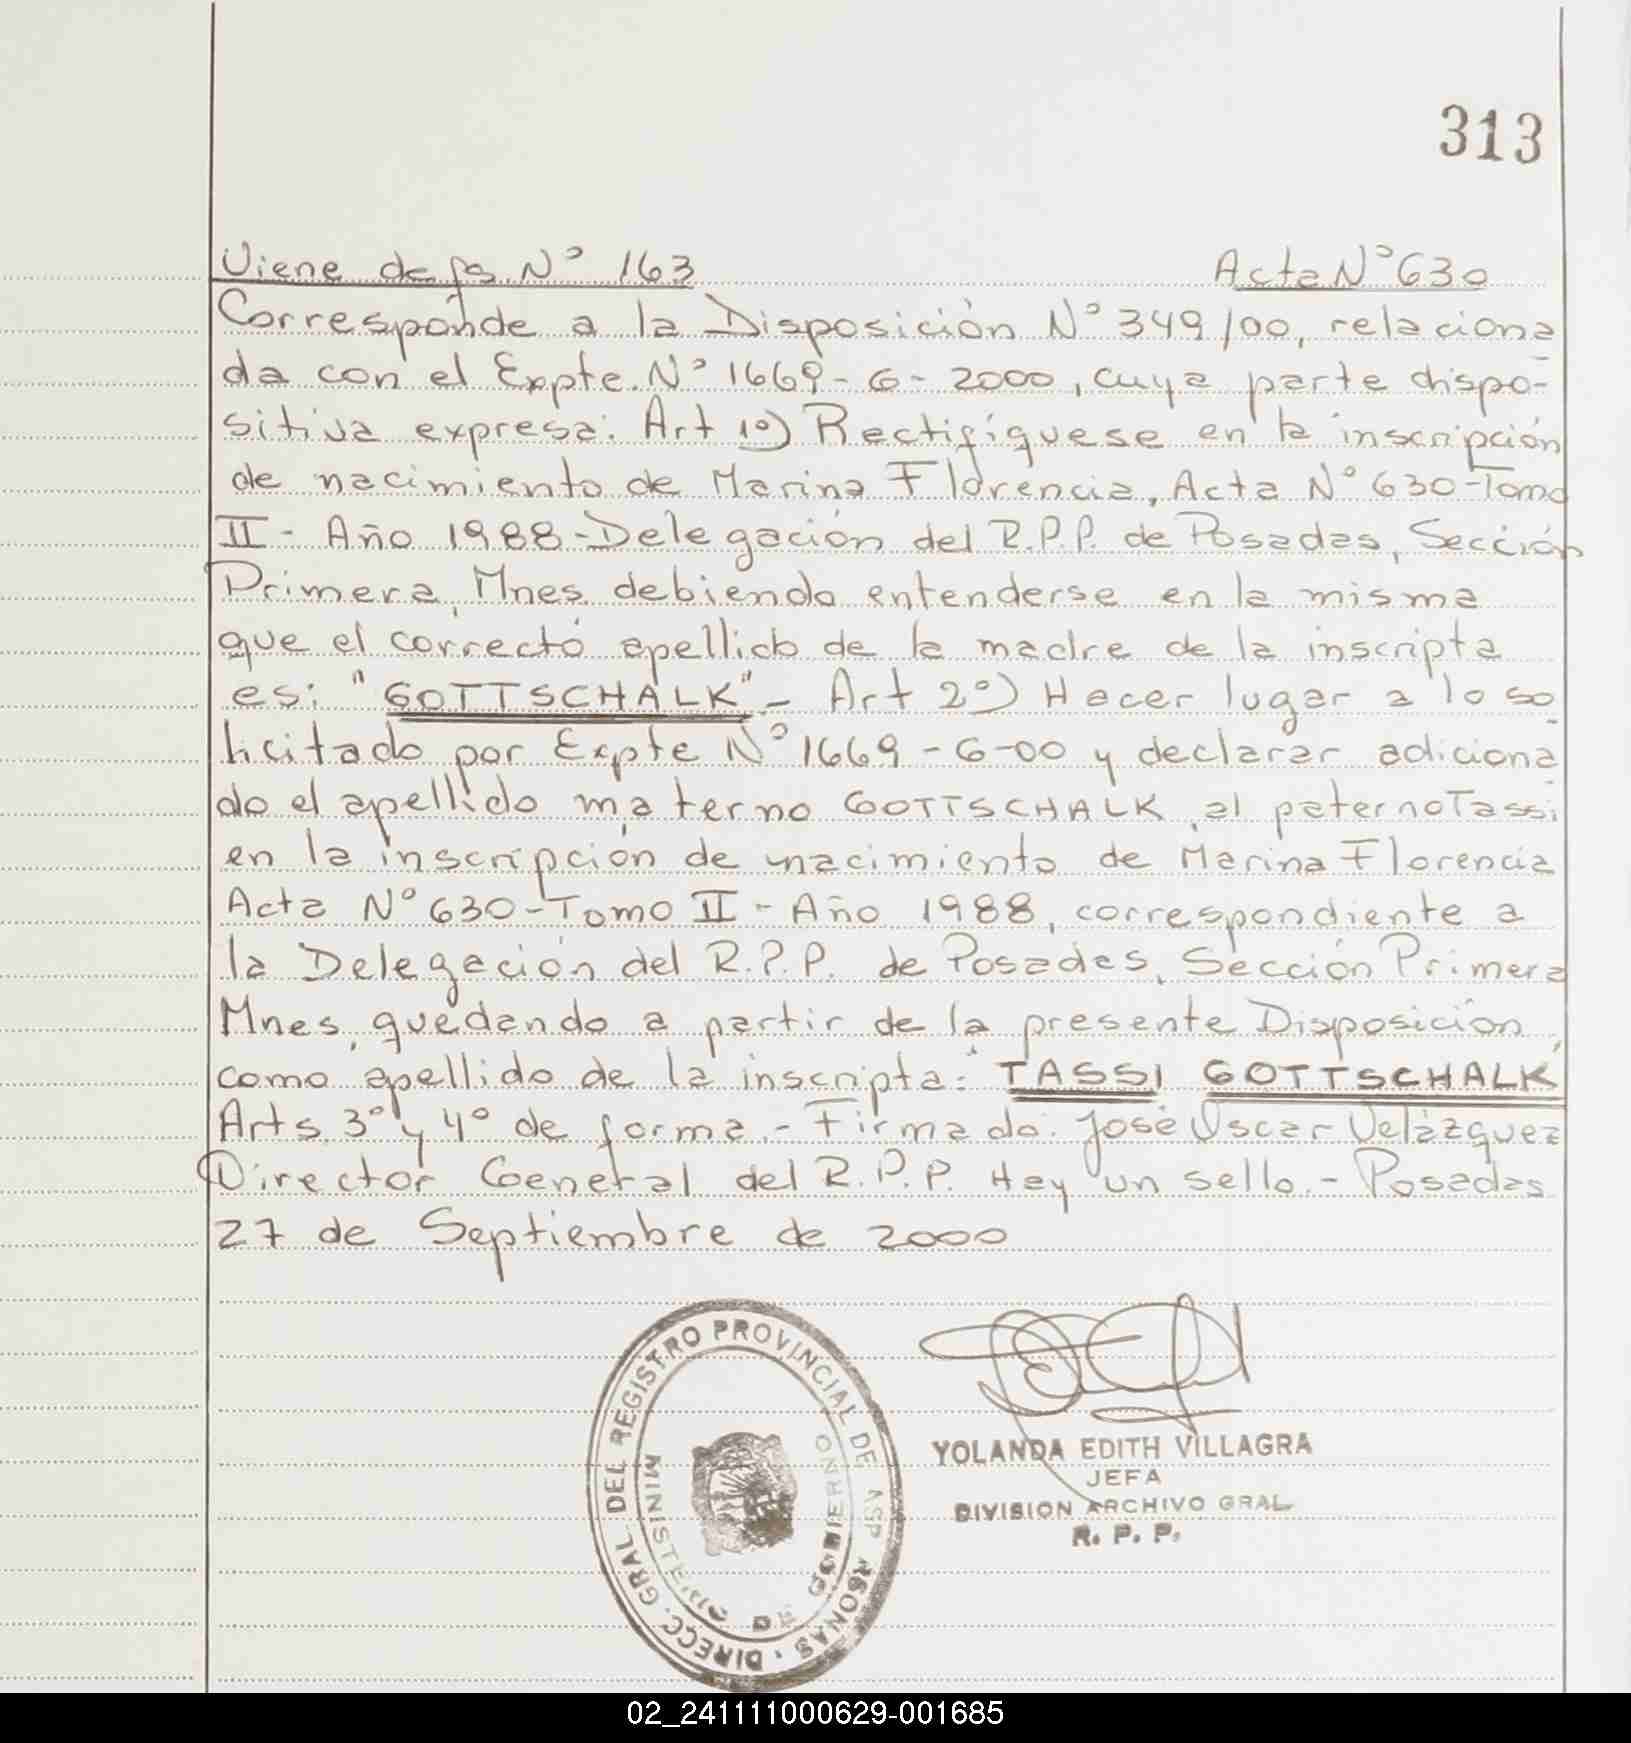 313
Viene de fs. Nº 163 Acta Nº 630
Corresponde a la Disposición Nº 349/00, relaciona
da con el Expte. Nº 1669-G-2000, cuya parte dispo-
sitiva expresa: Art 1º) Rectifíquese en la inscripción
de nacimiento de Marina Florencia, Acta Nº 630-Tomo
II- Año 1988-Delegación del R.P.P. de Posadas, Sección
Primera, Mnes. debiendo entenderse en la misma
que el correcto apellido de la madre de la inscripta
es: "GOTTSCHALK".- Art 2º) Hacer lugar a lo so
licitado por Expte Nº 1669-G-00 y declarar adiciona
do el apellido materno GOTTSCHALK, al paterno Tassi
en la inscripción de nacimiento de Marina Florencia
Acta Nº 630-Tomo II- Año 1988, correspondiente a
la Delegación del R.P.P. de Posadas, Sección Primera
Mnes, quedando a partir de la presente Disposición
como apellido de la inscripta: "TASSI GOTTSCHALK"
Arts. 3º y 4º de forma.- Firmado: José Oscar Velázquez
Director General del R.P.P. Hay un sello.- Posadas
27 de Septiembre de 2000
DIRECC. GRAL. DEL REGISTRO PROVINCIAL DE
MINISTERIO DE GOBIERNO
YOLANDA EDITH VILLAGRA
JEFA
DIVISION ARCHIVO GRAL
R. P. P.
02_241111000629-001685